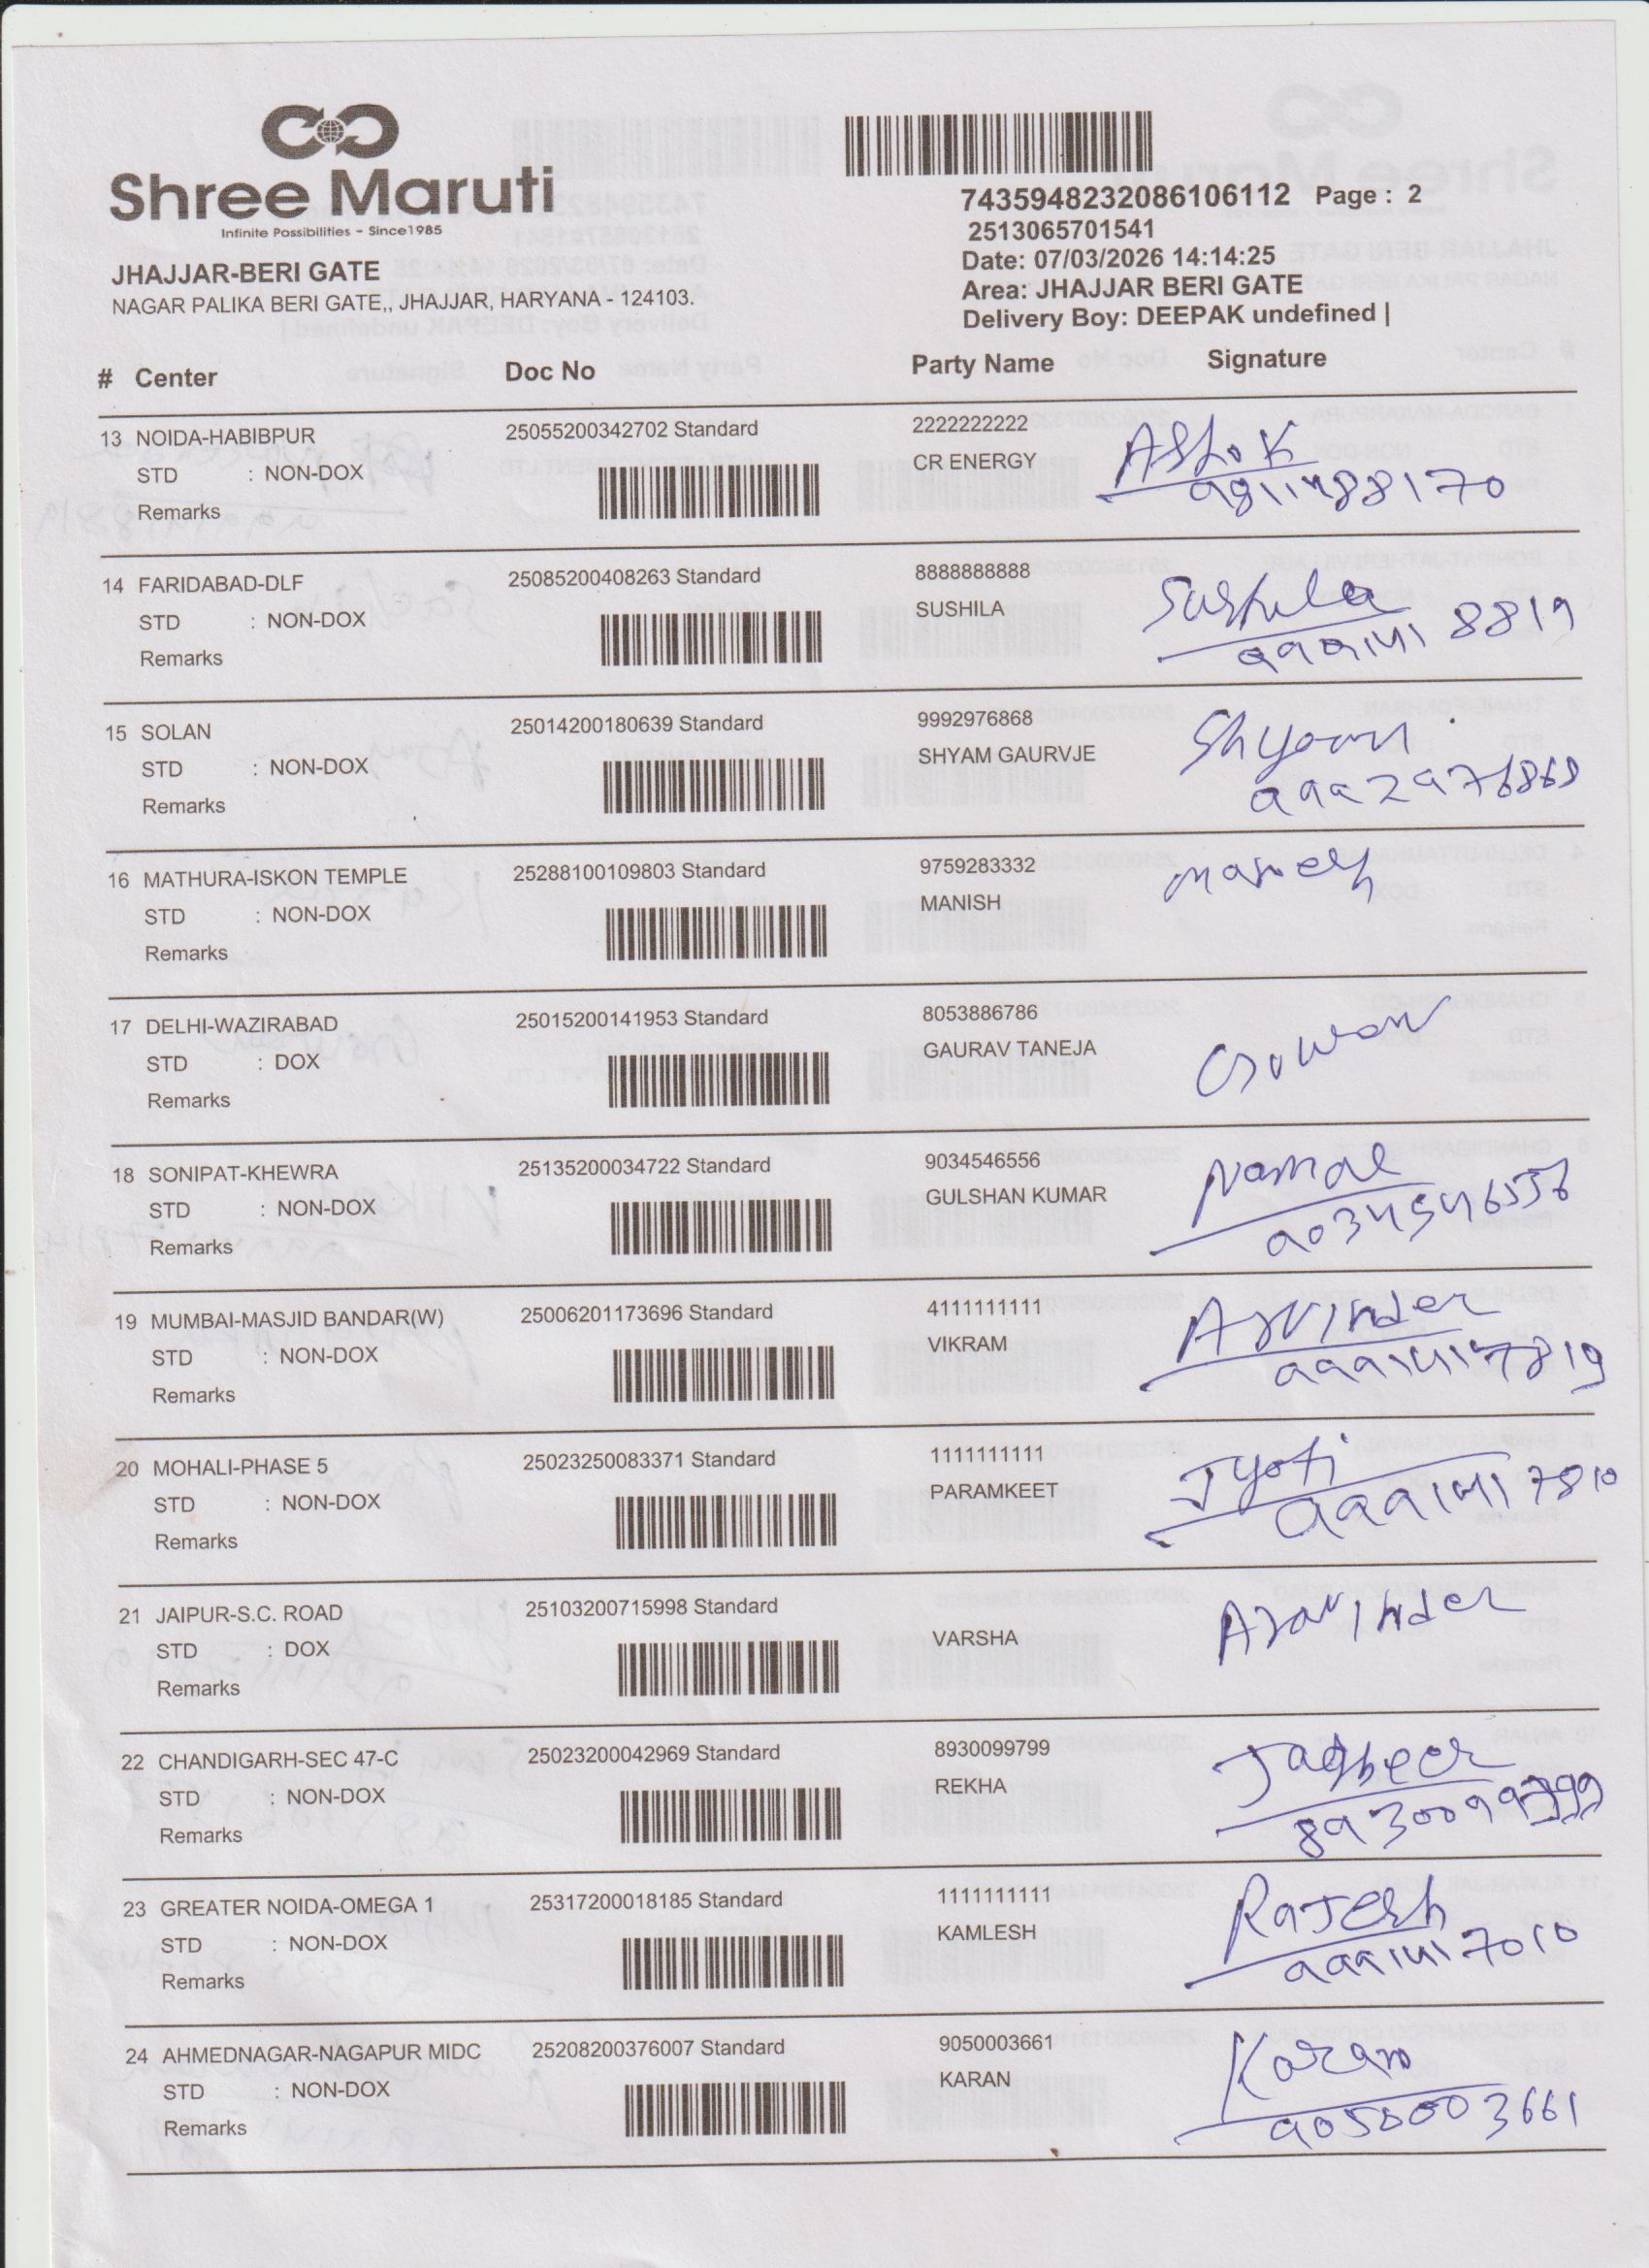 Shree Maruti
Infinite Possibilities - Since1985
JHAJJAR-BERI GATE
NAGAR PALIKA BERI GATE,, JHAJJAR, HARYANA - 124103.
7435948232086106112 Page : 2
2513065701541
Date: 07/03/2026 14:14:25
Area: JHAJJAR BERI GATE
Delivery Boy: DEEPAK undefined |
# Center Doc No Party Name Signature
13 NOIDA-HABIBPUR 25055200342702 Standard 2222222222 Ashok
STD : NON-DOX CR ENERGY
Remarks
14 FARIDABAD-DLF 25085200408263 Standard 8888888888 Sushila
STD : NON-DOX SUSHILA 8819
Remarks
15 SOLAN 25014200180639 Standard 9992976868 Shyam
STD : NON-DOX SHYAM GAURVJE 9992976868
Remarks
16 MATHURA-ISKON TEMPLE 25288100109803 Standard 9759283332
STD : NON-DOX MANISH
Remarks
17 DELHI-WAZIRABAD 25015200141953 Standard 8053886786
STD : DOX GAURAV TANEJA
Remarks
18 SONIPAT-KHEWRA 25135200034722 Standard 9034546556
STD : NON-DOX GULSHAN KUMAR 9034546556
Remarks
19 MUMBAI-MASJID BANDAR(W) 25006201173696 Standard 4111111111 Arvinder
STD : NON-DOX VIKRAM 9991417819
Remarks
20 MOHALI-PHASE 5 25023250083371 Standard 1111111111 Jyoti
STD : NON-DOX PARAMKEET 9991417810
Remarks
21 JAIPUR-S.C. ROAD 25103200715998 Standard Aravinder
STD : DOX VARSHA
Remarks
22 CHANDIGARH-SEC 47-C 25023200042969 Standard 8930099799 Jagbeer
STD : NON-DOX REKHA 8930099799
Remarks
23 GREATER NOIDA-OMEGA 1 25317200018185 Standard 1111111111 Rajesh
STD : NON-DOX KAMLESH 9991417010
Remarks
24 AHMEDNAGAR-NAGAPUR MIDC 25208200376007 Standard 9050003661 Karan
STD : NON-DOX KARAN 9050003661
Remarks